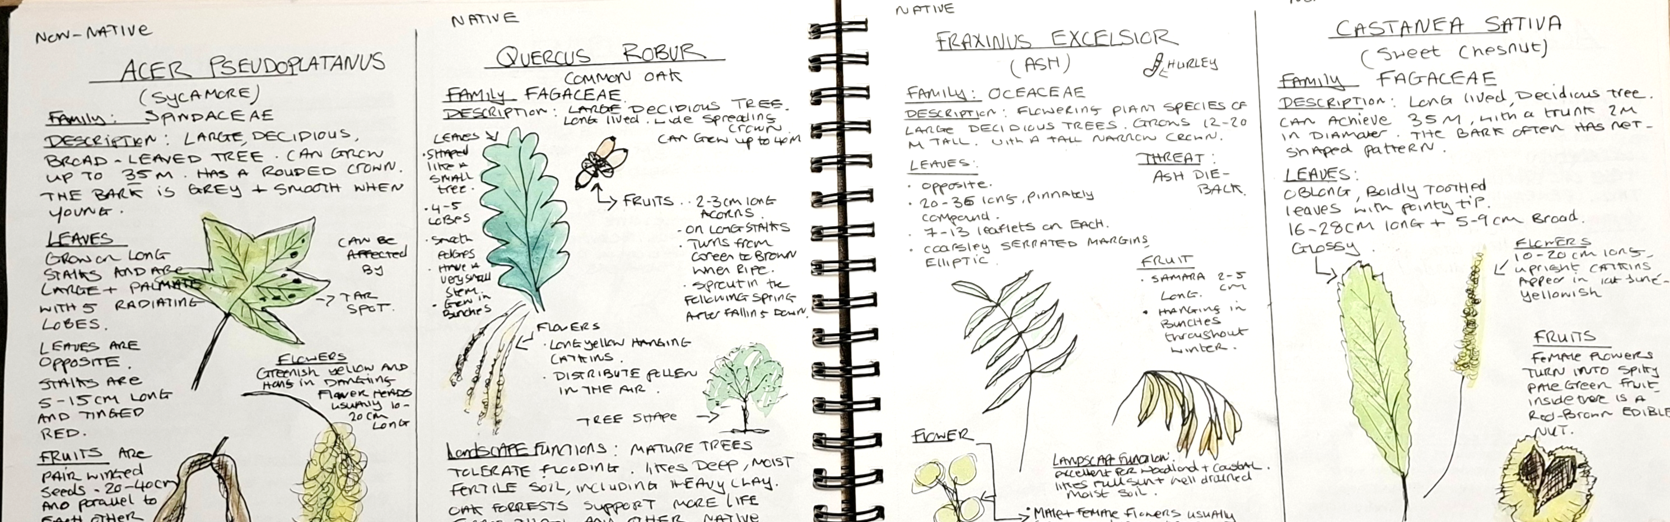 NON-NATIVE
ACER PSEUDOPLATANUS
(SYCAMORE)
FAMILY: SPINDACEAE
DESCRIPTION: LARGE, DECIDIOUS,
BROAD-LEAVED TREE. CAN GROW
UP TO 35M. HAS A ROUDED CROWN.
THE BARK IS GREY + SMOOTH WHEN
YOUNG.
LEAVES
GROW ON LONG
STALKS AND ARE
LARGE + PALMATE
WITH 5 RADIATING
LOBES.
LEAVES ARE
OPPOSITE.
STALKS ARE
5-15CM LONG
AND TINGED
RED.
FRUITS ARE
PAIR WINGED
SEEDS - 20-40CM
AND PARALLEL TO
EACH OTHER
CAN BE
AFFECTED
BY
TAR
SPOT.
FLOWERS
GREENISH YELLOW AND
HANG IN DANGLING
FLOWER HEADS
USUALLY 10-
20CM
LONG
NATIVE
QUERCUS ROBUR
COMMON OAK
FAMILY FAGACEAE
DESCRIPTION: LARGE DECIDIOUS TREE.
LONG LIVED. WIDE SPREADING
CROWN.
CAN GROW UP TO 40M
LEAVES
• SHAPED
LIKE A
SMALL
TREE.
• 4-5
LOBES
• SMOOTH
EDGES
• HAVE A
VERY SMALL
STEM.
• GROW IN
BUNCHES
FRUITS • 2-3CM LONG
ACORNS.
- ON LONG STALKS
• TURNS FROM
GREEN TO BROWN
WHEN RIPE.
• SPROUT IN THE
FOLLOWING SPRING
AFTER FALLING DOWN.
FLOWERS
• LONG YELLOW HANGING
CATKINS.
• DISTRIBUTE POLLEN
IN THE AIR.
TREE SHAPE
LANDSCAPE FUNCTIONS: MATURE TREES
TOLERATE FLOODING. LIKES DEEP, MOIST
FERTILE SOIL, INCLUDING HEAVY CLAY.
OAK FORRESTS SUPPORT MORE LIFE
AND OTHER NATIVE
NATIVE
FRAXINUS EXCELSIOR
(ASH)
HURLEY
FAMILY: OCEACEAE
DESCRIPTION: FLOWERING PLANT SPECIES OF
LARGE DECIDIOUS TREES. GROWS 12-20
M TALL. WITH A TALL NARROW CROWN.
LEAVES:
• OPPOSITE.
• 20-35 LONG, PINNATELY
COMPOUND.
• 7-13 LEAFLETS ON EACH.
• COARSLEY SERRATED MARGINS,
ELLIPTIC.
THREAT:
ASH DIE-
BACK.
FRUIT
• SAMARA 2-5
CM
LONG.
• HANGING IN
BUNCHES
THROUGHOUT
WINTER.
FLOWER
LANDSCAPE FUNCTION:
EXCELLENT FOR WOODLAND + COASTAL.
LIKES FULL SUN + WELL DRAINED
MOIST SOIL.
• MALE + FEMALE FLOWERS USUALLY
CASTANEA SATIVA
(SWEET CHESNUT)
FAMILY FAGACEAE
DESCRIPTION: LONG LIVED, DECIDIOUS TREE.
CAN ACHIEVE 35M, WITH A TRUNK 2M
IN DIAMATER. THE BARK OFTEN HAS NET-
SHAPED PATTERN.
LEAVES:
OBLONG, BOLDLY TOOTHED
LEAVES WITH POINTY TIP.
16-28CM LONG + 5-9CM BROAD.
GLOSSY.
FLOWERS
10-20CM LONG,
UPRIGHT CATKINS
APPEAR IN LATE JUNE-
YELLOWISH
FRUITS
FEMALE FLOWERS
TURN INTO SPIKY
PALE GREEN FRUIT
INSIDE THERE IS A
RED-BROWN EDIBLE
NUT.